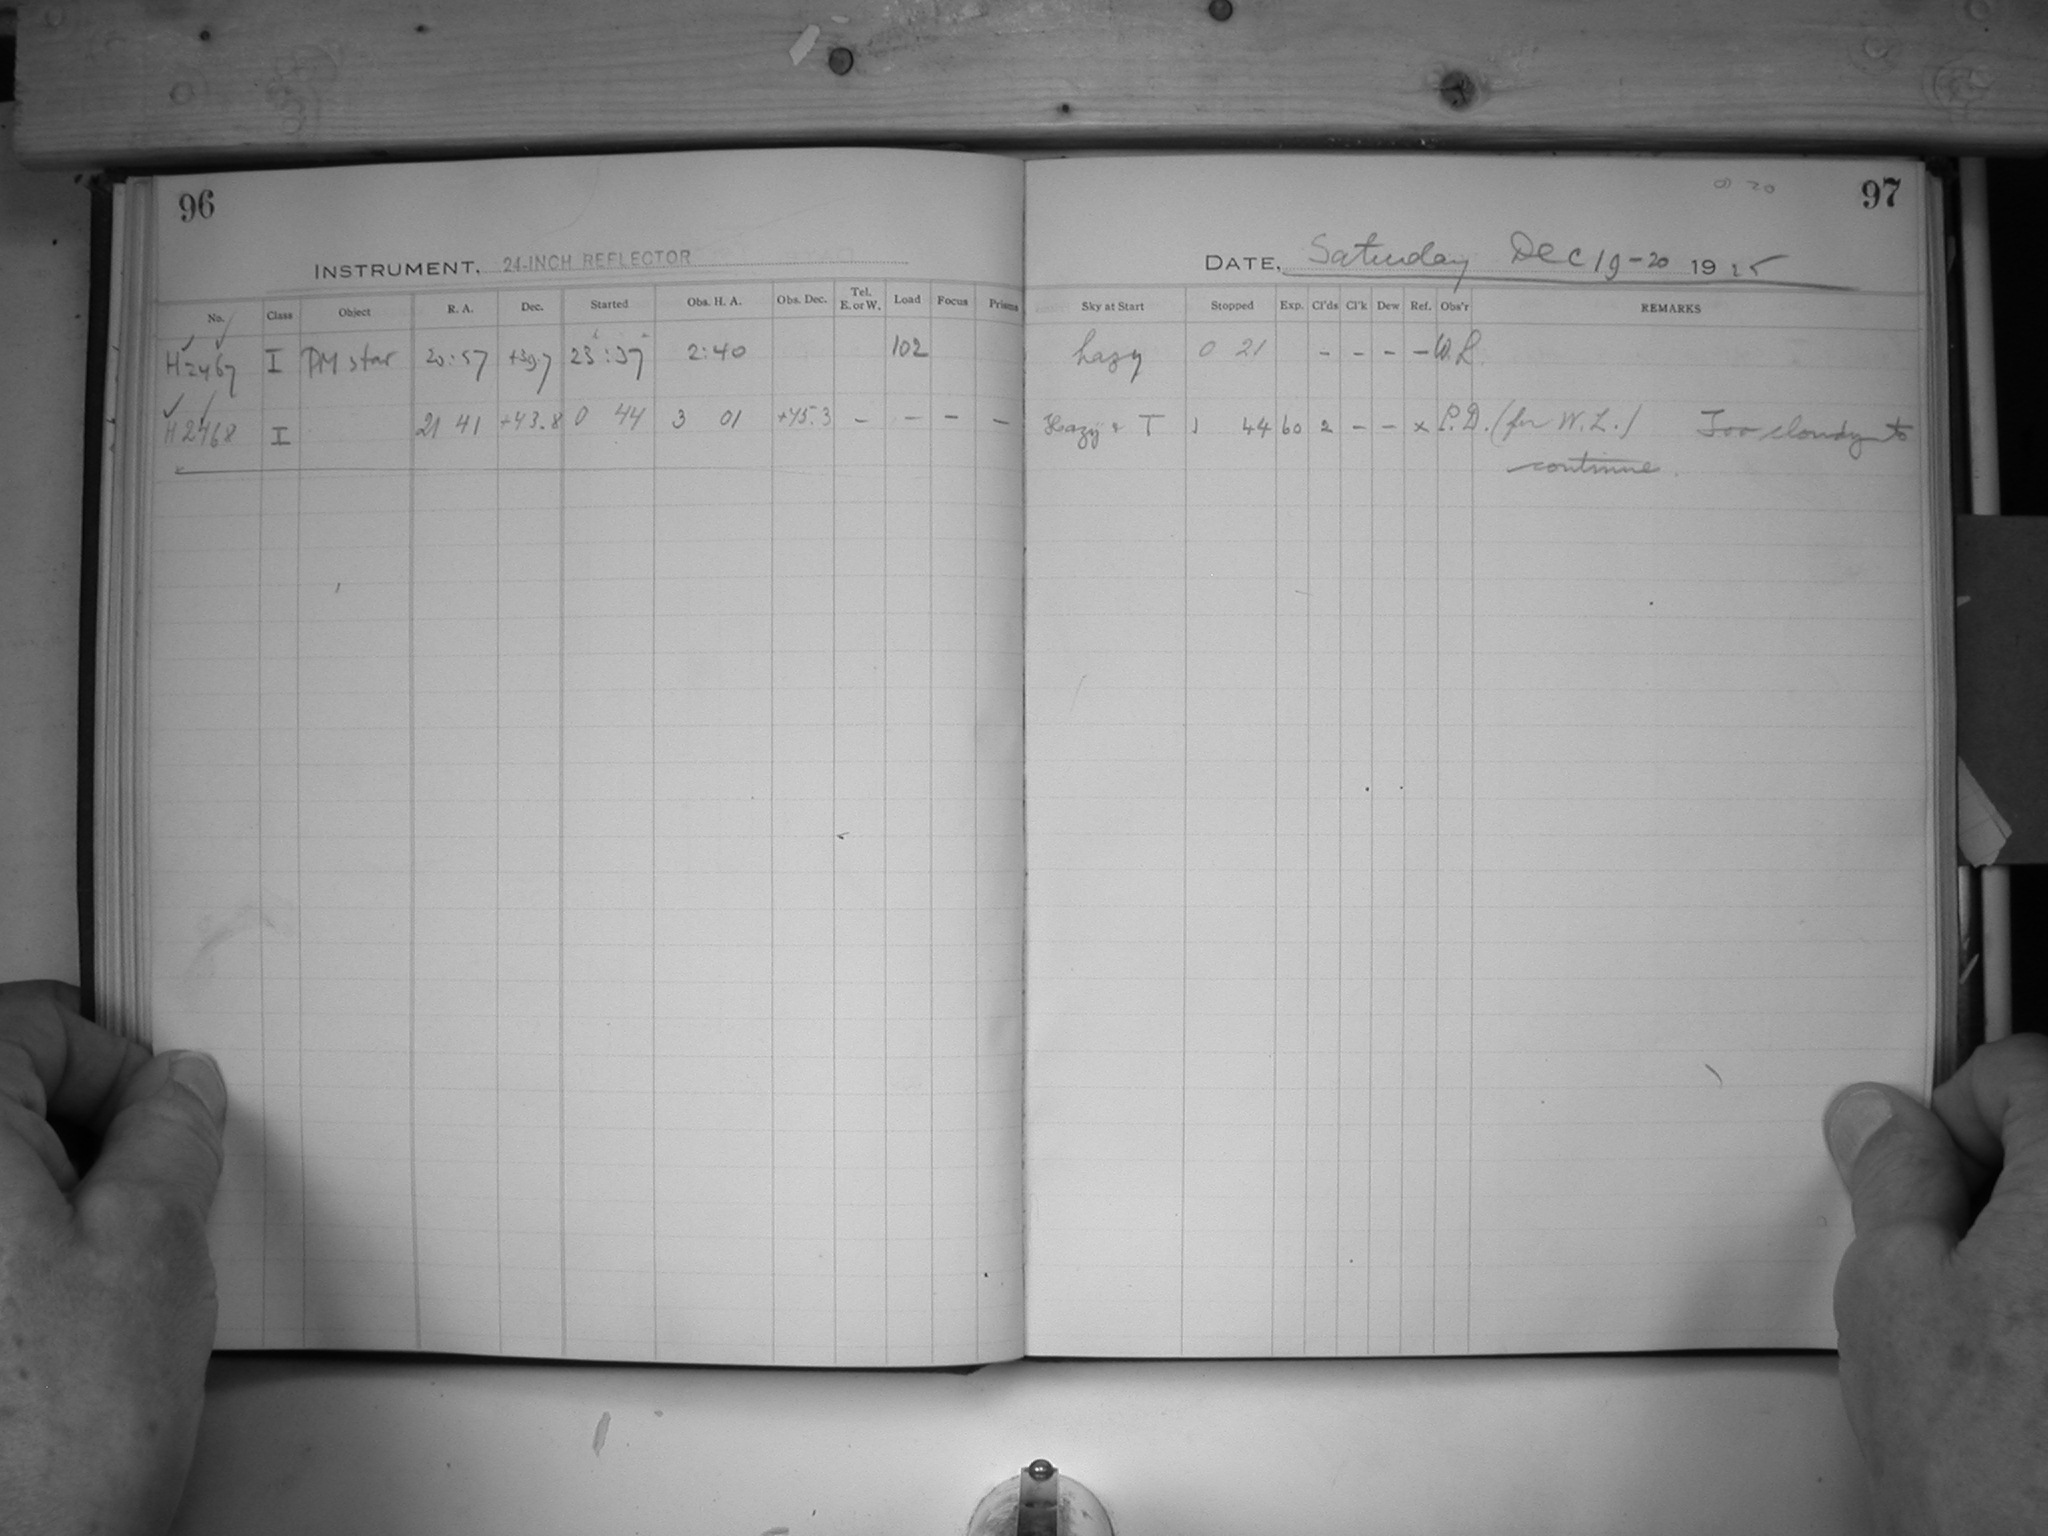 96
INSTRUMENT, 24-INCH REFLECTOR
No. Class Object R. A. Dec. Started Obs. H. A. Obs. Dec. Tel. E. or W. Load Focus Prisms
H2467 I PM star 20:57 +39.7 23:37 2:40 102
H2468 I 21 41 +43.8 0 44 3 01 +45.3 – – – –
97
DATE, Saturday Dec 19-20 1925
Sky at Start Stopped Exp. Cl'ds Cl'k Dew Ref. Obs'r REMARKS
hazy 0 21 – – – – W.L.
Hazy & T 1 44 60 2 – – x P.D. (for W.L.) Too cloudy to
continue.